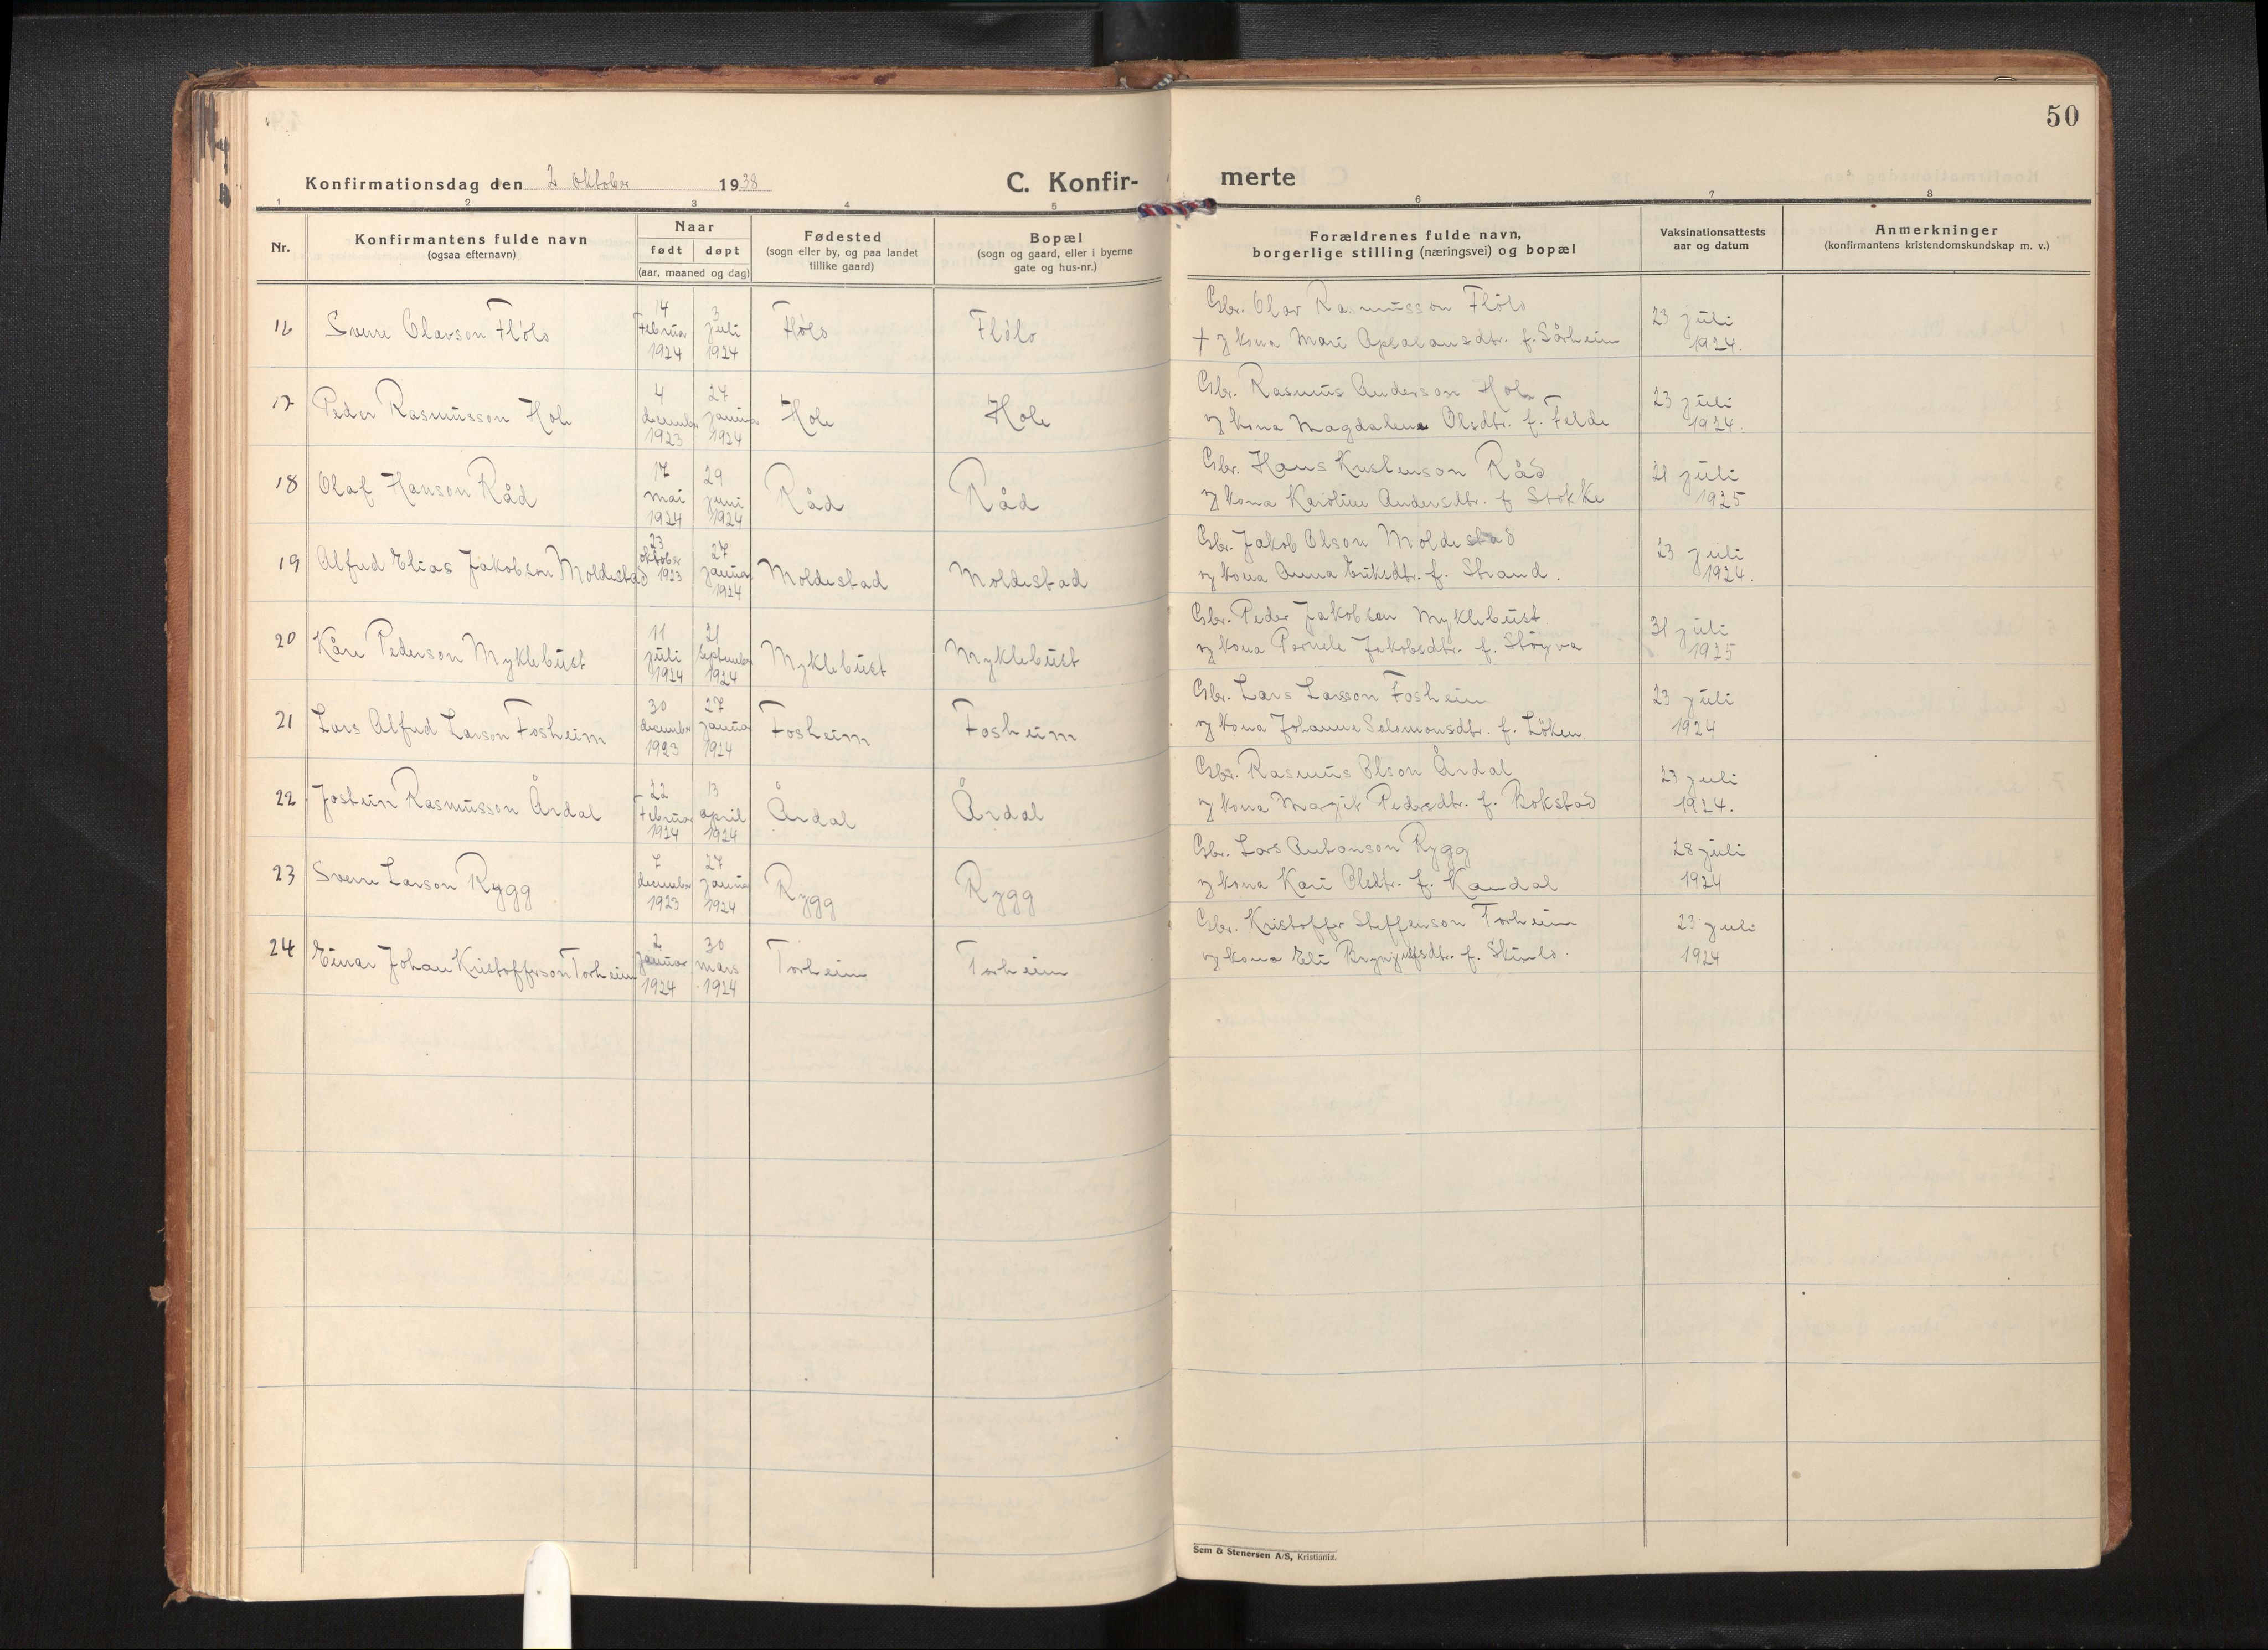 50
Konfirmationsdag den 2 oktober 1938
C. Konfir- merte
1 2 3 4 5 6 7 8
Nr.
Konfirmantens fulde navn
(ogsaa efternavn)
Naar
født døpt
(aar, maaned og dag)
Fødested
(sogn eller by, og paa landet
tillike gaard)
Bopæl
(sogn og gaard, eller i byerne
gate og hus-nr.)
Forældrenes fulde navn,
borgerlige stilling (næringsvei) og bopæl
Vaksinationsattests
aar og datum
Anmerkninger
(konfirmantens kristendomskundskap m. v.)
16 Sverre Olavson Flólo
14 Februar 1924
3 juli 1924
Flólo
Flólo
Gbr. Olav Rasmusson Flólo
+ og kona Mari Apsalonsdtr. f. Sårheim
23 juli
1924.
17 Peder Rasmusson Hole
4 december 1923
27 januar 1924
Hole
Hole
Gbr. Rasmus Anderson Hole
og kona Magdalene Olsdtr. f. Felde
23 juli
1924.
18 Olaf Hanson Råd
17 mai 1924
29 juni 1924
Råd
Råd
Gbr. Hans Kristenson Råd
og kona Karoline Andersdtr. f Stokke
21 juli
1925
19 Alfred Elias Jakobson Moldestad
23 oktober 1923
27 januar 1924
Moldestad
Moldestad
Gbr. Jakob Olson Moldestad
og kona Anna Eriksdtr. f. Strand.
23 juli
1924.
20 Kåre Pederson Myklebust
11 juli 1924
21 september 1924
Myklebust
Myklebust
Gbr. Peder Jakobson Myklebust
og kona Pernele Jakobsdtr. f. Støyva
31 juli
1925
21 Lars Alfred Larson Fosheim
30 december 1923
27 januar 1924
Fosheim
Fosheim
Gbr. Lars Larsson Fosheim
og kona Johanne Salomonsdtr. f. Lóken
23 juli
1924
22 Jostein Rasmusson Årdal
22 Februar 1924
13 april 1924
Årdal
Årdal
Gbr. Rasmus Olson Årdal
og kona Margit Pedersdtr. f. Bokstad
23 juli
1924.
23 Sverre Larson Rygg
7 december 1923
27 januar 1924
Rygg
Rygg
Gbr. Lars Antonson Rygg
og kona Kari Olsdtr. f. Kandal
28 juli
1924
24 Einar Johan Kristofferson Torheim
2 januar 1924
30 mars 1924
Torheim
Torheim
Gbr. Kristoffer Steffenson Torheim
og kona Eli Brynjulfsdtr. f. Skinlo.
23 juli
1924
Sem & Stenersen A/S, Kristiania.